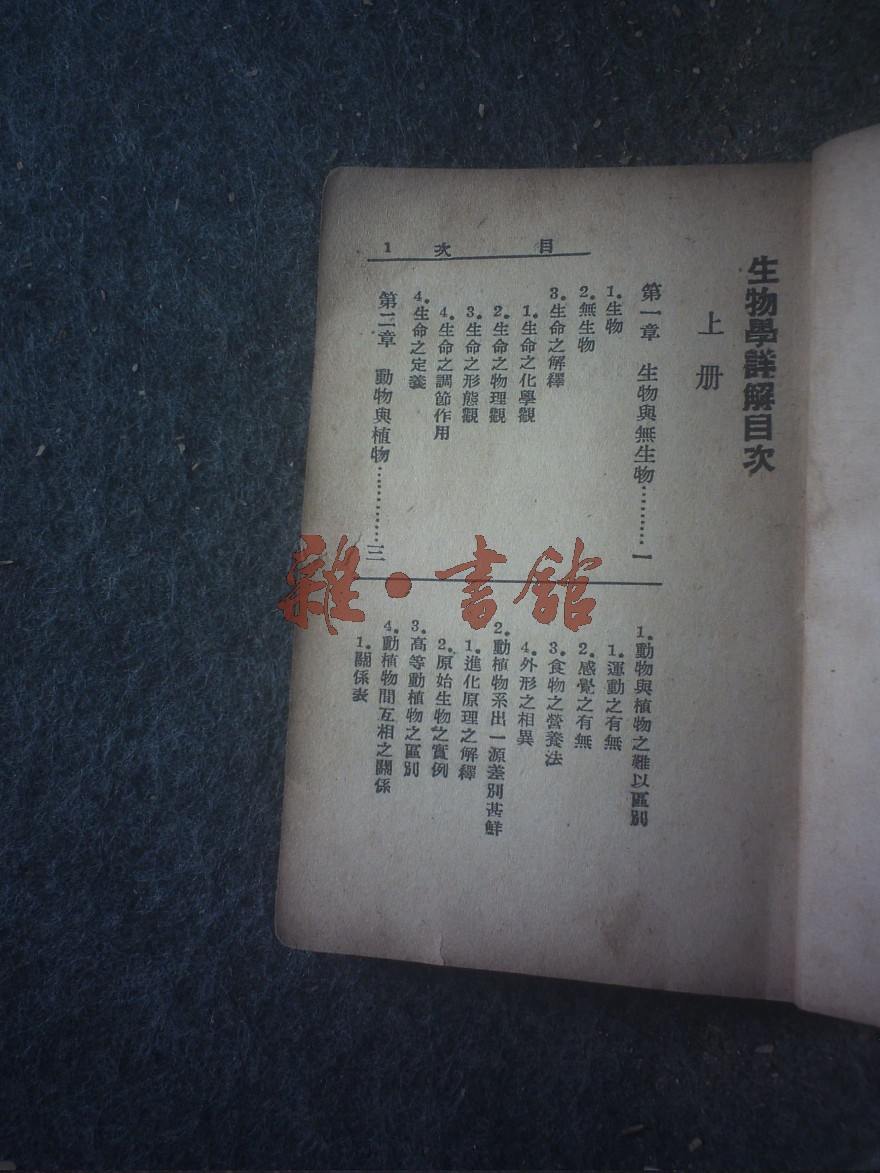 生物學詳解目次
上册
第一章 生物與無生物…………一
1. 生物
2. 無生物
3. 生命之解釋
1. 生命之化學觀
2. 生命之物理觀
3. 生命之形態觀
4. 生命之調節作用
4. 生命之定義
第二章 動物與植物…………三
1. 動物與植物之難以區別
1. 運動之有無
2. 感覺之有無
3. 食物之營養法
4. 外形之相異
2. 動植物系出一源差別甚鮮
1. 進化原理之解釋
2. 原始生物之實例
3. 高等動植物之區別
4. 動植物間互相之關係
1. 關係表
目次 1
雜·書館